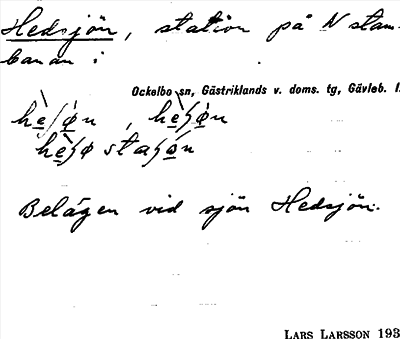 Hedsjön, station på N stam-
banan:
Ockelbo sn, Gästriklands v. doms. tg, Gävleb. l.
Belägen vid sjön Hedsjön.
LARS LARSSON 193